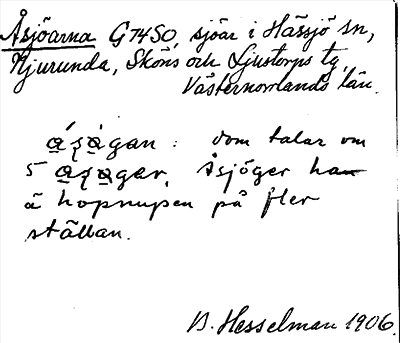 Åsjöarna G74SO, sjöar i Hässjö sn,
Njurunda, Sköns och Ljustorps tg,
Västernorrlands län.
: dom talar om
5 åsjöger han
ä hopnupen på fler
ställan.
B. Hesselman 1906.